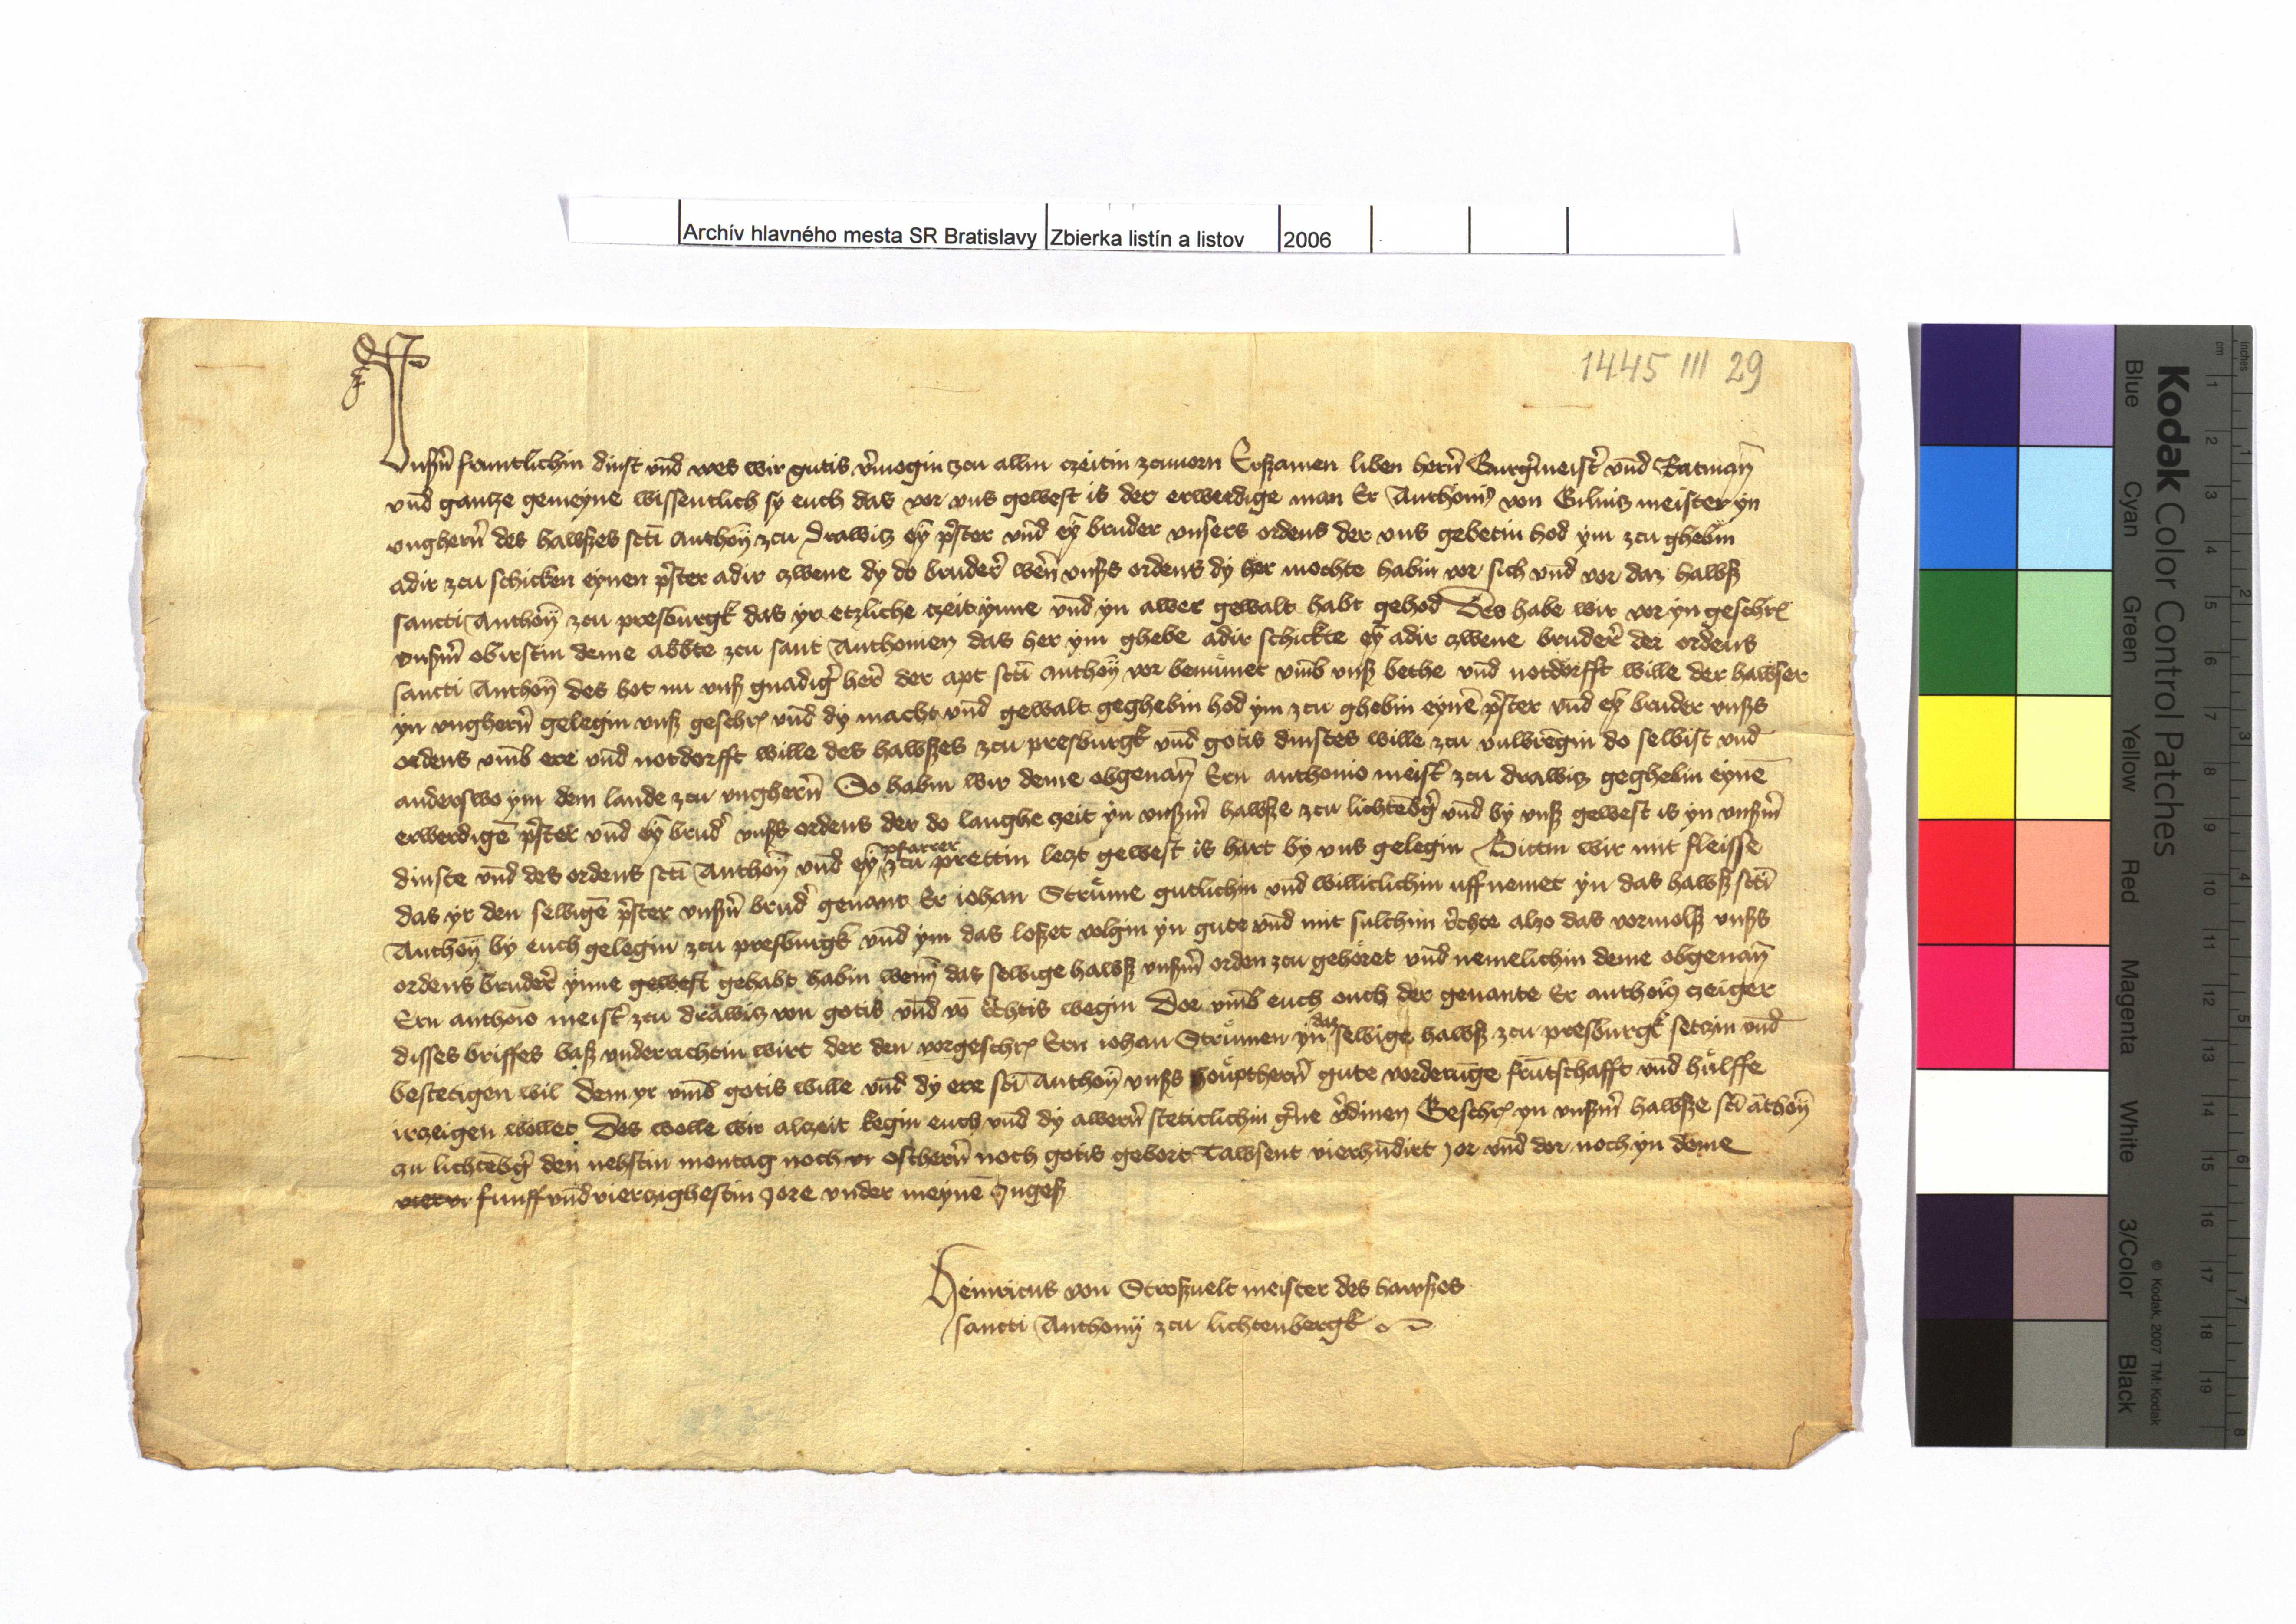 Archív hlavného mesta SR Bratislavy Zbierka listín a listov 2006
1445 III 29
Vnßn̄ fruntlichin dinst vnd wes wir gutis v̄mogin zcu allin czeitin zcuuorn Erßamen liben hern̄ Burgermeist̄ vnd Ratman̄
vnd gantze gemeyne wissentlich sy euch das vor vns gewest is der erwerdige man Er Anthoni9 von Gilnicz meister yn
vnghern̄ des hawßes scti Anthoӯ zcu Drawicz eӯ pr̄ster vnd eӯ bruder vnsers ordens der vns gebetin hod ym zcu ghebin
adir zcu schicken eynen pr̄ster adir czwene dy do bruder̄ wern̄ vnßs ordens dy her mochte habin vor sich vnd vor daz hawß
sancti Anthoӯ zcu presburgk das yr etzliche czeit ynne vnd yn awer gewalt habt gehod Des habe wir vor yn geschr̄
vnßm̄ obirstin deme abbte zcu sant Anthonien das her ym ghebe adir schickte eӯ adir czwene bruder̄ der ordens
sancti Anthoӯ des bot nu vnß gnadiḡ her̄ der apt scti Anthoӯ vor benumet vmb vnß bethe vnd notdorfft wille der hawser
yn vnghern̄ gelegin vnß geschr̄ vnd dy macht vnd gewalt geghebin hod ym zcu ghebin eynē pr̄ster vnd eӯ bruder vnßs
ordens vmb ere vnd notdorfft wille des hawßes zcu presburgk vnd gotis dinstes wille zcu vulbrēgin do selbist vnd
anderswo ym dem lande zcu vnghern̄ So habin wir deme obgenan̄ Ern anthonio meist̄ zcu drawicz geghebin eynē
erwerdigē pr̄ster vnd eӯ brud̄ vnßs ordens der do langhe zeit yn vnßm̄ hawße zcu lichtēbḡ vnd by vnß gewest is yn vnßm̄
dinste vnd des ordens scti Anthoӯ vnd eӯ pfarrer zcu prettin lezt gewest is hart by vns gelegin Bittin wir mit fleisse
das yr den selbigē pr̄ster vnßn̄ brud̄ genant Er iohan Strume gutlichin vnd williclichin uffnemet yn das hawß scti
Anthoӯ by euch gelegin zcu presburgk vnd ym das loßet volgin yn gute vnd mit sulchim r̄chte alzo das vormolß vnßs
ordens bruder̄ ynne gewest gehabt habin wenn̄ das selbige hawß vnßm̄ orden zcu gehoret vnd nemelichin deme obgenan̄
Ern anthoīo meist̄ zcu drawicz von gotis vnd vō r̄chtis wegin Doe vmb euch ouch der genante Er anthoī9 czeiger
disses briffes baß vnderrichtin wirt der den vorgeschr̄ Ern iohan Strumen yn daz selbige hawß zcu presburgk setczin vnd
bestetigen wil dem yr vmb gotis wille vnd dy ere scti Anthoӯ vnßs houpthern̄ gute vorderunge frūtschafft vnd hulffe
irczeigen wollet Des wolle wir alczeit kegin euch vnd dy awern̄ steticlichin ḡne v̄dinen Geschr̄ yn vnßm̄ hawße sti āthoӯ
zu lichtēbḡ den nehstin montag noch vr osthern̄ noch gotis gebort Tawsent vierhūdirt jor vnd dor noch yn deme
funff vnd vierczighestin jore vnder meynē Ingeß
Heinricus von Stroßuelt meister des hawßes
sancti Anthonij zcu lichtenbergk
Kodak Color Control Patches
Blue Cyan Green Yellow Red Magenta White 3/Color Black
© Kodak, 2007 TM: Kodak
cm 1 2 3 4 5 6 7 8 9 10 11 12 13 14 15 16 17 18 19
inches 1 2 3 4 5 6 7 8